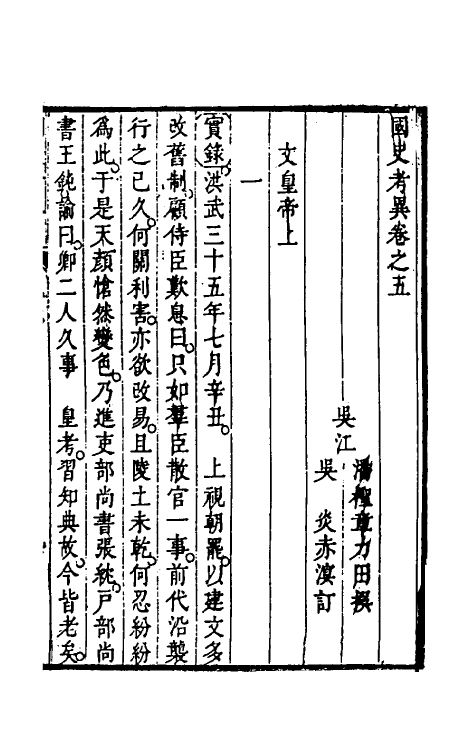 國史考異卷之五
吳江
潘檉章力田撰
吳　炎赤溟訂
文皇帝上
一
實錄洪武三十五年七月辛丑。　上視朝罷。以建文多
改舊制。顧侍臣歎息曰。只如羣臣散官一事。前代沿襲
行之已久。何關利害。亦欲改易。且陵土未乾。何忍紛紛
為此。于是天顏愴然變色。乃進吏部尚書張紞。戶部尚
書王鈍諭曰。卿二人久事　皇考。習知典故。今皆老矣。